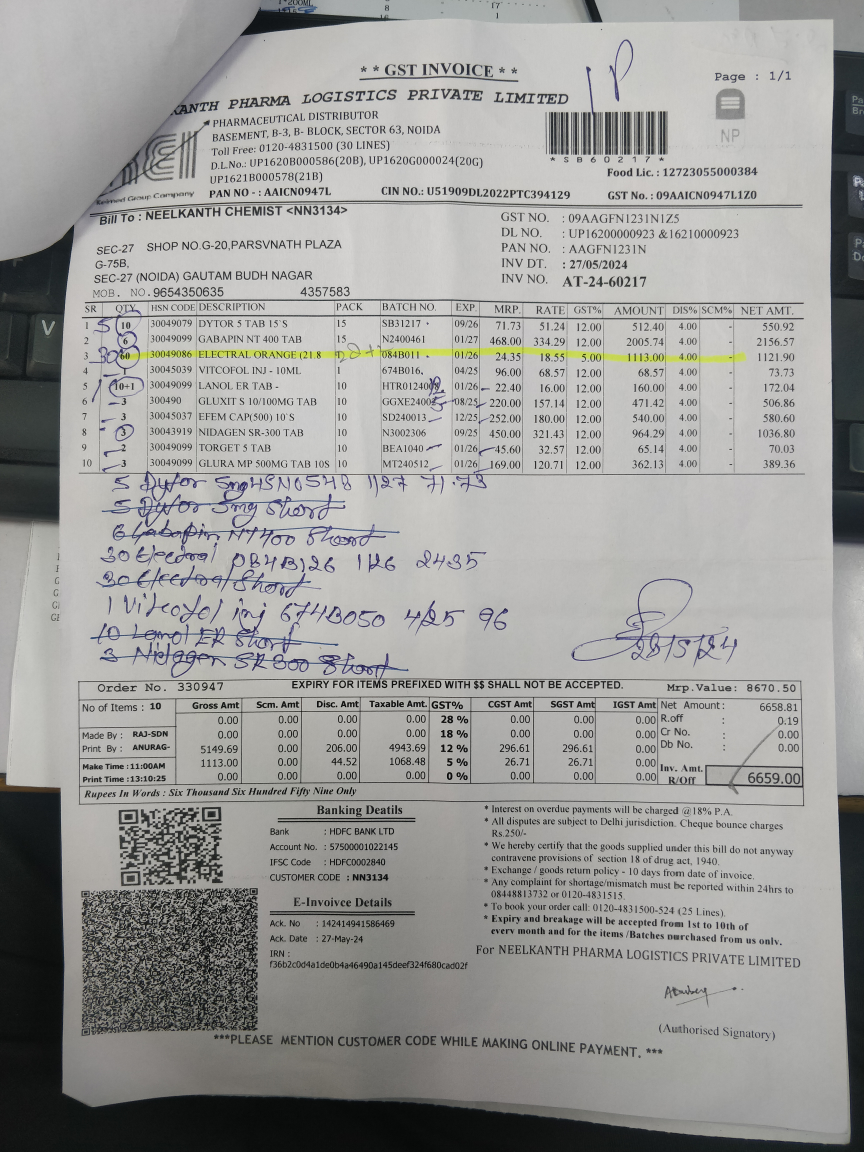 * * GST INVOICE * *
Page : 1/1
KANTH PHARMA LOGISTICS PRIVATE LIMITED
PHARMACEUTICAL DISTRIBUTOR
BASEMENT, B-3, B- BLOCK, SECTOR 63, NOIDA
Toll Free: 0120-4831500 (30 LINES)
D.L.No.: UP1620B000586(20B), UP1620G000024(20G)
UP1621B000578(21B)
PAN NO - : AAICN0947L CIN NO.: U51909DL2022PTC394129
NP
* S B 6 0 2 1 7 *
Food Lic. : 12723055000384
GST No. : 09AAICN0947L1Z0
Keimed Group Company
Bill To : NEELKANTH CHEMIST <NN3134>
SEC-27 SHOP NO.G-20,PARSVNATH PLAZA
G-75B,
SEC-27 (NOIDA) GAUTAM BUDH NAGAR
MOB. NO.9654350635 4357583
GST NO. : 09AAGFN1231N1Z5
DL NO. : UP16200000923 &16210000923
PAN NO. : AAGFN1231N
INV DT. : 27/05/2024
INV NO. AT-24-60217
SR QTY. HSN CODE DESCRIPTION PACK BATCH NO. EXP. MRP. RATE GST% AMOUNT DIS% SCM% NET AMT.
1 5 10 30049079 DYTOR 5 TAB 15`S 15 SB31217 09/26 71.73 51.24 12.00 512.40 4.00 - 550.92
2 6 30049099 GABAPIN NT 400 TAB 15 N2400461 01/27 468.00 334.29 12.00 2005.74 4.00 - 2156.57
3 30 60 30049086 ELECTRAL ORANGE (21.8 084B011 01/26 24.35 18.55 5.00 1113.00 4.00 - 1121.90
4 1 30045039 VITCOFOL INJ - 10ML 1 674B016, 04/25 96.00 68.57 12.00 68.57 4.00 - 73.73
5 10+1 30049099 LANOL ER TAB - 10 01/26 22.40 16.00 12.00 160.00 4.00 - 172.04
6 3 300490 GLUXIT S 10/100MG TAB 10 08/25 220.00 157.14 12.00 471.42 4.00 - 506.86
7 3 30045037 EFEM CAP(500) 10`S 10 SD240013 12/25 252.00 180.00 12.00 540.00 4.00 - 580.60
8 3 30043919 NIDAGEN SR-300 TAB 10 N3002306 09/25 450.00 321.43 12.00 964.29 4.00 - 1036.80
9 2 30049099 TORGET 5 TAB 10 BEA1040 01/26 45.60 32.57 12.00 65.14 4.00 - 70.03
10 3 30049099 GLURA MP 500MG TAB 10S 10 MT240512 01/26 169.00 120.71 12.00 362.13 4.00 - 389.36
5 Dytor 5mg 1/27 71.73
5 Dytor 5mg Short
6 Gabapin NT400 Short
30 Electral 084B126 1/26 2435
30 Electral Short
1 Vitcofol inj 674B050 4/25 96
10 Lanol ER Short
3 Nidagen SR300 Short
28/5/24
Order No. 330947 EXPIRY FOR ITEMS PREFIXED WITH $$ SHALL NOT BE ACCEPTED. Mrp.Value: 8670.50
No of Items : 10 Gross Amt Scm. Amt Disc. Amt Taxable Amt. GST% CGST Amt SGST Amt IGST Amt Net Amount: 6658.81
0.00 0.00 0.00 0.00 28 % 0.00 0.00 0.00 R.off 0.19
Made By : RAJ-SDN 0.00 0.00 0.00 0.00 18 % 0.00 0.00 0.00 Cr No. : 0.00
Print By : ANURAG- 5149.69 0.00 206.00 4943.69 12 % 296.61 296.61 0.00 Db No. : 0.00
Make Time :11:00AM 1113.00 0.00 44.52 1068.48 5 % 26.71 26.71 0.00
Print Time :13:10:25 0.00 0.00 0.00 0.00 0 % 0.00 0.00 0.00
Inv. Amt. R/Off 6659.00
Rupees In Words : Six Thousand Six Hundred Fifty Nine Only
Banking Deatils
Bank : HDFC BANK LTD
Account No. : 57500001022145
IFSC Code : HDFC0002840
CUSTOMER CODE : NN3134
E-Invoivce Details
Ack. No : 142414941586469
Ack. Date : 27-May-24
IRN :
f36b2c0d4a1de0b4a46490a145deef324f680cad02f
* Interest on overdue payments will be charged @18% P.A.
* All disputes are subject to Delhi jurisdiction. Cheque bounce charges
Rs.250/-
* We hereby certify that the goods supplied under this bill do not anyway
contravene provisions of section 18 of drug act, 1940.
* Exchange / goods return policy - 10 days from date of invoice.
* Any complaint for shortage/mismatch must be reported within 24hrs to
08448813732 or 0120-4831515.
* To book your order call: 0120-4831500-524 (25 Lines).
* Expiry and breakage will be accepted from 1st to 10th of
every month and for the items /Batches purchased from us only.
For NEELKANTH PHARMA LOGISTICS PRIVATE LIMITED
(Authorised Signatory)
***PLEASE MENTION CUSTOMER CODE WHILE MAKING ONLINE PAYMENT. ***